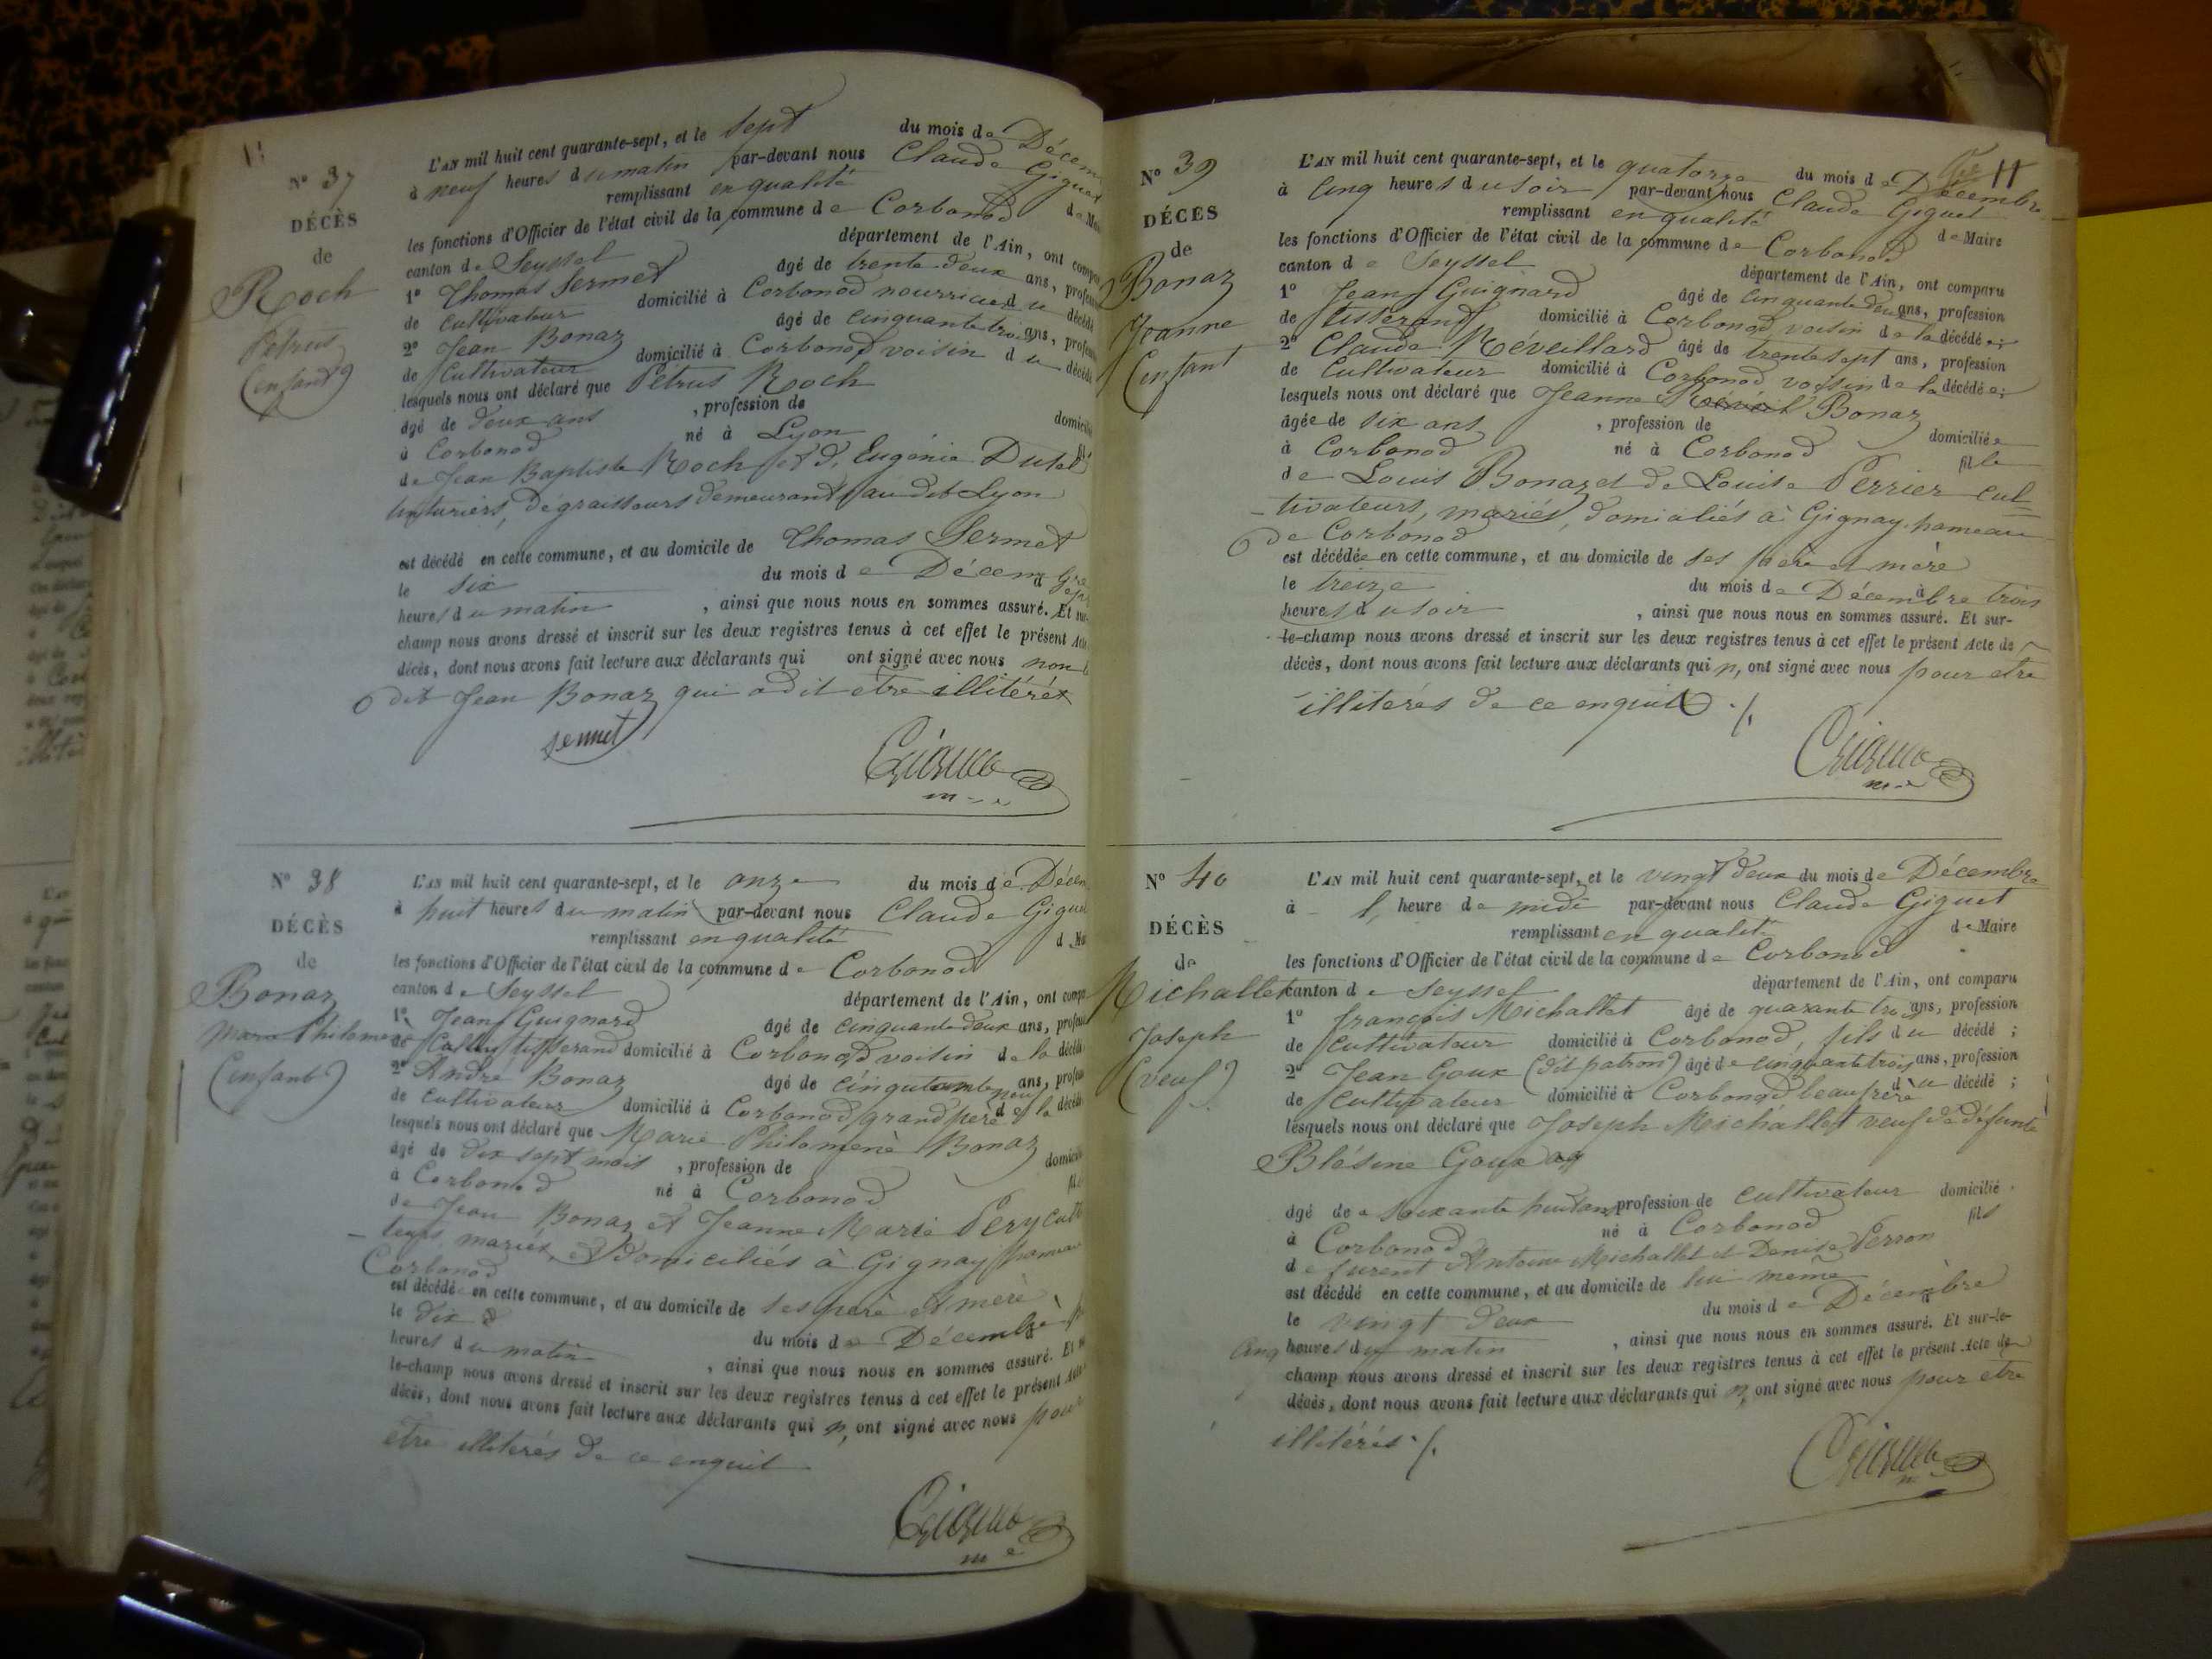 N° 37
DÉCÈS
de
Roch
Pétrus
(enfant)
L'AN mil huit cent quarante-sept, et le sept du mois de Décem
à neuf heures du matin par-devant nous Claude Giguet
remplissant en qualité de Ma
les fonctions d'Officier de l'état civil de la commune de Corbonod
canton de Seyssel département de l'Ain, ont compa
1° Thomas Sermet âgé de trente deux ans, profess
de cultivateur domicilié à Corbonod nourricier du décédé
2° Jean Bonaz âgé de cinquante trois ans, profess
de Cultivateur domicilié à Corbonod voisin du décédé
lesquels nous ont déclaré que Pétrus Roch
âgé de deux ans , profession de domicilié
à Corbonod né à Lyon fil
de Jean Baptiste Roch et d, Eugénie Dutel
tinturiers, dégraisseurs demeurant au dit Lyon
est décédé en cette commune, et au domicile de Thomas Sermet
le six du mois de Décembre à sept
heures du matin , ainsi que nous nous en sommes assuré. Et sur-
champ nous avons dressé et inscrit sur les deux registres tenus à cet effet le présent Acte
décès, dont nous avons fait lecture aux déclarants qui ont signé avec nous non le
dit Jean Bonaz qui a dit être illitéré
Sermet
Giguet
m
N° 38
DÉCÈS
de
Bonaz
Marie Philomène
(enfant)
L'AN mil huit cent quarante-sept, et le onze du mois de Décem
à huit heures du matin par-devant nous Claude Giguet
remplissant en qualité d Ma
les fonctions d'Officier de l'état civil de la commune de Corbonod
canton de Seyssel département de l'Ain, ont compa
1° Jean Guignard âgé de cinquante deux ans, profess
de tisserand domicilié à Corbonod voisin de la décédé
2° André Bonaz âgé de cinquante neuf ans, profess
de cultivateur domicilié à Corbonod grand père de la décédé
lesquels nous ont déclaré que Marie Philomène Bonaz
âgé de dix sept mois , profession de domicilié
à Corbonod né à Corbonod fil
de Jean Bonaz et Jeanne Marie Pery culti
teurs, mariés, domiciliés à Gignay hameau
Corbonod
est décédé en cette commune, et au domicile de ses père et mère
le dix du mois de Décembre à
heures du matin , ainsi que nous nous en sommes assuré. Et
le-champ nous avons dressé et inscrit sur les deux registres tenus à cet effet le présent Acte
décès, dont nous avons fait lecture aux déclarants qui n, ont signé avec nous pour
être illitérés de ce enquit
Giguet
m e
11
N° 39
DÉCES
de
Bonaz
Jeanne
(enfant
L'AN mil huit cent quarante-sept, et le quatorze du mois de Décembre
à cinq heures du soir par-devant nous Claude Giguet
remplissant en qualité de Maire
les fonctions d'Officier de l'état civil de la commune de Corbonod
canton de Seyssel département de l'Ain, ont comparu
1° Jean Guignard âgé de cinquante deux ans, profession
de tisserand domicilié à Corbonod voisin de la décédée;
2° Claude Réveillard âgé de trente sept ans, profession
de Cultivateur domicilié à Corbonod voisin de la décédée;
lesquels nous ont déclaré que Jeanne Bonaz
âgée de six ans , profession de domiciliée
à Corbonod né à Corbonod fille
de Louis Bonaz et de Louise Perrier cul-
-tivateurs, mariés, domiciliés à Gignay hameau
de Corbonod
est décédée en cette commune, et au domicile de ses père et mère
le treize du mois de Décembre à trois
heures du soir , ainsi que nous nous en sommes assuré. Et sur-
le-champ nous avons dressé et inscrit sur les deux registres tenus à cet effet le présent Acte de
décès, dont nous avons fait lecture aux déclarants qui n, ont signé avec nous pour être
illitérés de ce enquit ./.
Giguet
m e
N° 40
DÉCÈS
de
Michallet
Joseph
(veuf)
L'AN mil huit cent quarante-sept, et le vingt deux du mois de Décembre
à 1, heure de midi par-devant nous Claude Giguet
remplissant en qualité de Maire
les fonctions d'Officier de l'état civil de la commune de Corbonod
canton de Seyssel département de l'Ain, ont comparu
1° françois Michallet âgé de quarante trois ans, profession
de Cultivateur domicilié à Corbonod, fils du décédé ;
2° Jean Goux (dit patron) âgé de cinquante trois ans, profession
de Cultivateur domicilié à Corbonod beaufrère du décédé ;
lesquels nous ont déclaré que Joseph Michallet veuf de défunte
Blésine Goux
âgé de soixante huit ans profession de Cultivateur domicilié
à Corbonod né à Corbonod fils
de furent Antoine Michallet et Denise Perron
est décédé en cette commune, et au domicile de lui même
le vingt deux du mois de Décembre à
cinq heures du matin , ainsi que nous nous en sommes assuré. Et sur-le-
champ nous avons dressé et inscrit sur les deux registres tenus à cet effet le présent Acte de
décès, dont nous avons fait lecture aux déclarants qui n, ont signé avec nous pour être
illitérés ./.
Giguet